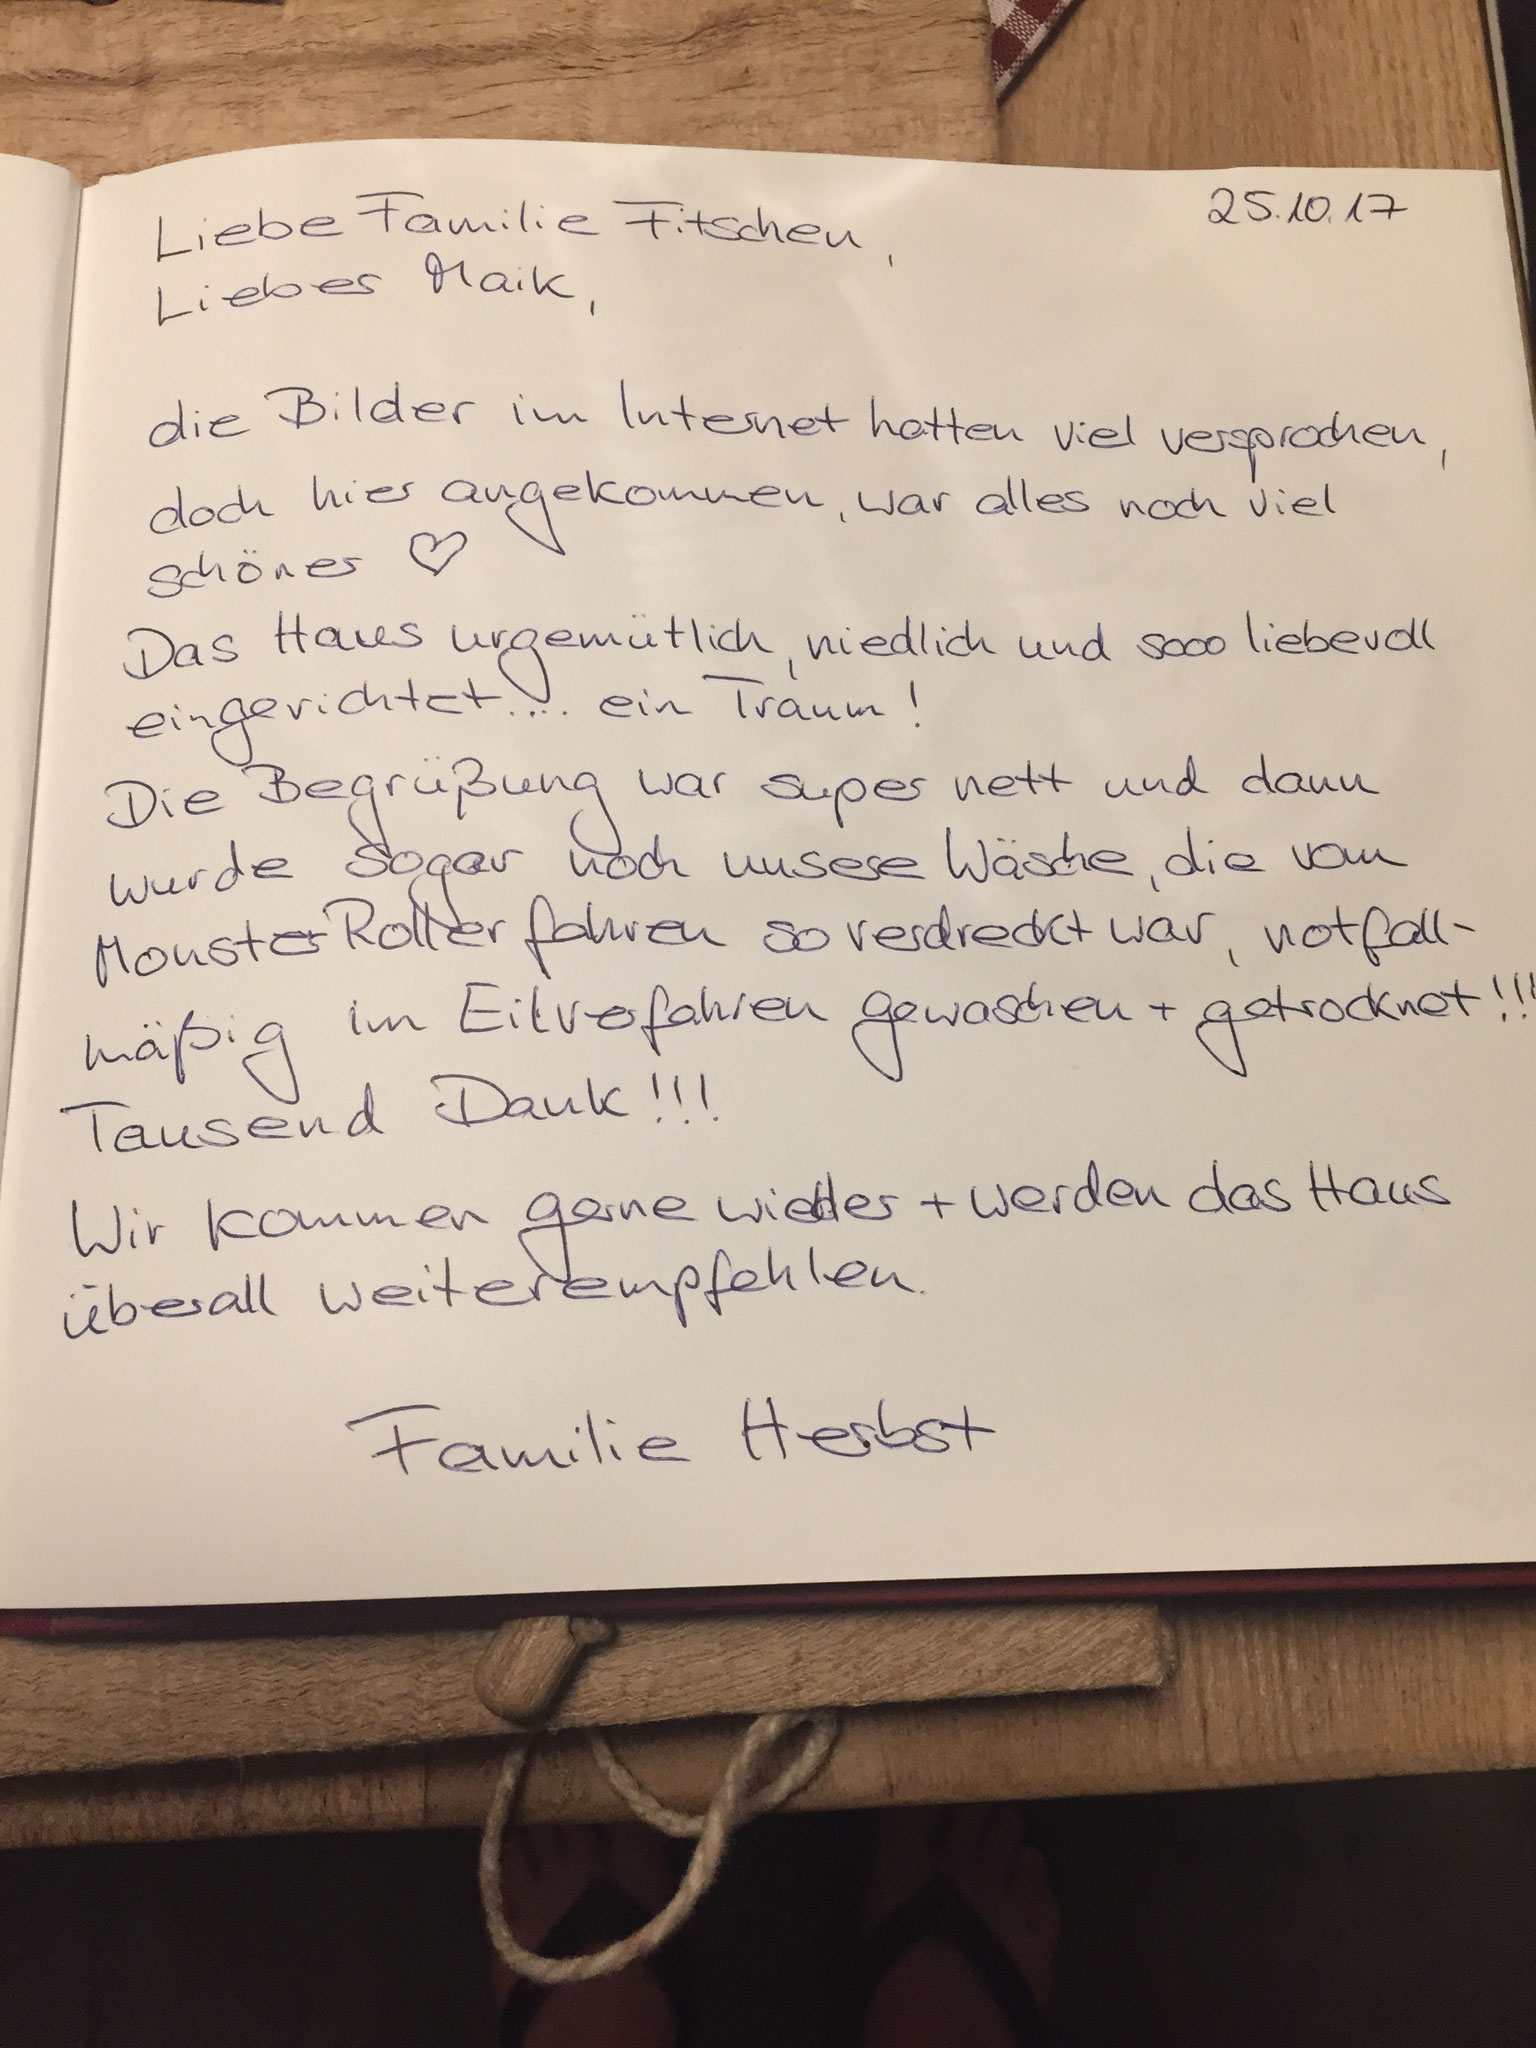 25.10.17
Liebe Familie Fitschen,
Lieber Maik,
die Bilder im Internet hatten viel versprochen,
doch hier angekommen, war alles noch viel
schöner ♡
Das Haus urgemütlich, niedlich und sooo liebevoll
eingerichtet.... ein Traum!
Die Begrüßung war super nett und dann
wurde sogar noch unsere Wäsche, die vom
Monster Roller fahren so verdreckt war, notfall-
mäßig im Eilverfahren gewaschen + getrocknet!!!
Tausend Dank!!!
Wir kommen gerne wieder + werden das Haus
überall weiterempfehlen.
Familie Herbst